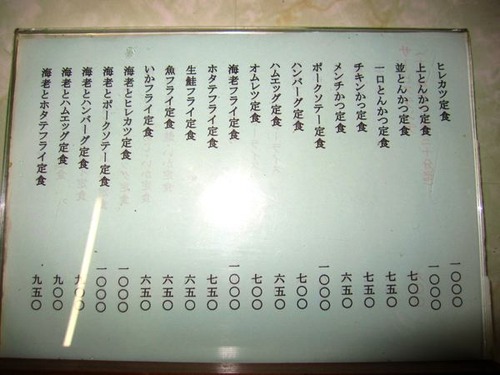 ヒレカツ定食 一〇〇〇
上とんかつ定食 一〇〇〇
並とんかつ定食 七〇〇
一口とんかつ定食 七五〇
チキンかつ定食 七五〇
メンチかつ定食 六五〇
ポークソテー定食 一〇〇〇
ハンバーグ定食 七〇〇
ハムエッグ定食 七〇〇
オムレツ定食 七〇〇
海老フライ定食 一〇〇〇
ホタテフライ定食 七五〇
生鮭フライ定食 六五〇
魚フライ定食 六五〇
いかフライ定食 六五〇
海老とヒレカツ定食 一〇〇〇
海老とポークソテー定食 一〇〇〇
海老とハンバーグ定食 九〇〇
海老とハムエッグ定食 九〇〇
海老とホタテフライ定食 九五〇